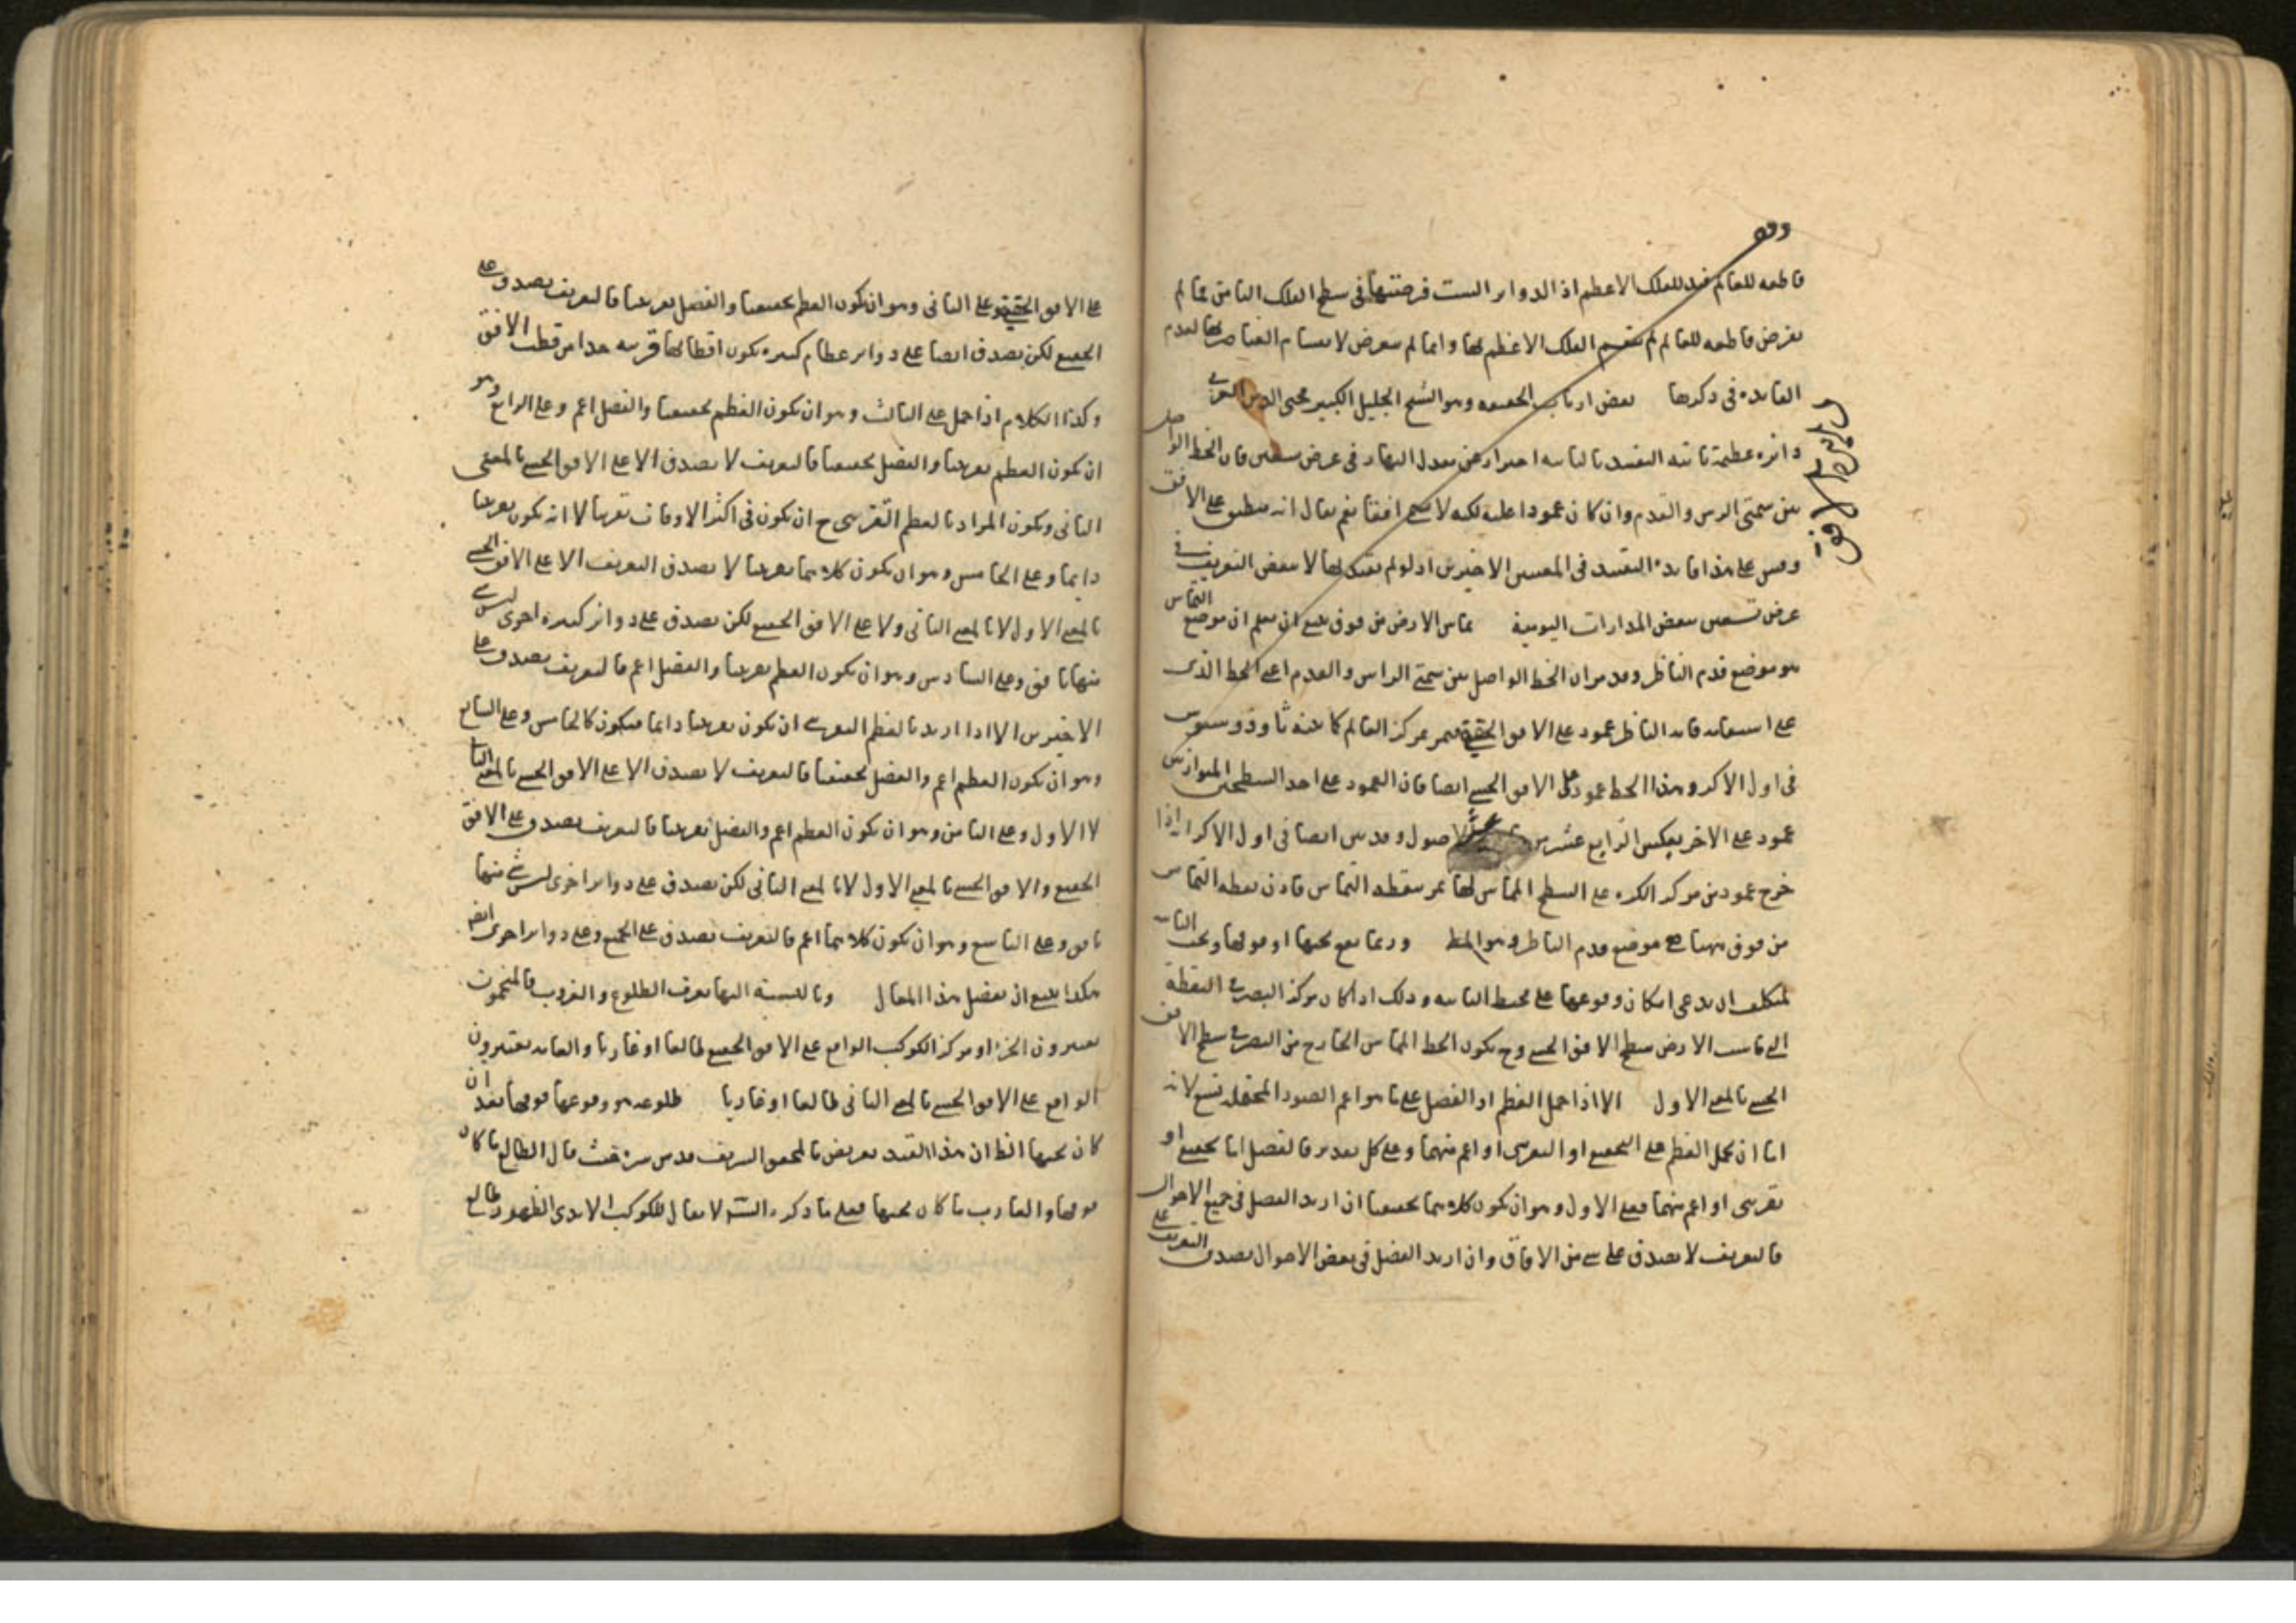 وقوله
قاطعه للعالم قيد للفلك الاعظم اذ الدواير الست فرضتها فى سطح الفلك الثامن فما لم
تفرض قاطعه للعالم لم تقسم الفلك الاعظم لها وانما لم يتعرض لانقسام العناصر بها لعدم
الفايده فى ذكرها بعض ارباب الحقيقه وهو الشيخ الجليل الكبير محيى الدين العربى
دائرة عظيمة ثابته التقييد بالثابته احتراز عن معدل النهار فى عرض تسعين فان الخط الواصل
بين سمتى الراس والقدم وان كان عمودا عليه لكنه لا يسمى افقا نعم يقال انه منطبق على الافق
وقس على هذا فايدة التقييد فى المعنيين الاخيرين اذ لو لم تقيد بها لانتقض التعريف فى
عرض تسعين ببعض المدارات اليومية يماس الارض من فوق ينبغى ان يعلم ان موضع التماس
هو موضع قدم الناظر وقد مر ان الخط الواصل بين سمتى الراس والقدم اعنى الخط الذى
على استقامة قامة الناظر عمود على الافق الحقيقى فيمر بمركز العالم كما بينه ثاوذوسيوس
فى اول الاكر وهذا الخط عمود على الافق الحسى ايضا فان العمود على احد السطحين المتوازيين
عمود على الاخر بعكس الرابع عشر من الاصول وقد بين ايضا فى اول الاكر انه اذا
خرج عمود من مركز الكره على السطح المماس لها مر بنقطه التماس فاذن نقطه التماس
من فوق ههنا هى موضع قدم الناظر وهو المط وربما يقع تحتها او فوقها وتحت الثابتة
لمتكلف ان يدعى امكان وقوعها على محيط الثابته وذلك اذا كان مركز البصر فى النقطة
التى ماست الارض سطح الافق الحسى وح يكون الخط المماس الخارج من البصر فى سطح الافق
الحسى بالمعنى الاول الا اذا حمل العظم او الفصل على ما هو اعم الصور المحتمله تسع لانه
اما ان يحمل العظم على التحقيقى او التقريبى او اعم منهما وعلى كل تقدير فالفصل اما تحقيقى او
تقريبى او اعم منهما فعلى الاول وهو ان يكون كلاهما تحقيقيا ان اريد الفصل فى جميع الاحوال
فالتعريف لا يصدق على شى من الافاق وان اريد الفصل فى بعض الاحوال يصدق التعريف على
على الافق الحقيقى وعلى الثانى وهو ان يكون العظم تحقيقيا والفصل تقريبيا فالتعريف يصدق على
الحقيقى لكن يصدق ايضا على دواير عظام كثيرة يكون اقطابها قريبه جدا من قطب الافق
وكذا الكلام اذا حمل على الثالث وهو ان يكون العظم تحقيقيا والفصل اعم وعلى الرابع وهو
ان يكون العظم تقريبيا والفصل تحقيقيا فالتعريف لا يصدق الا على الافق الحسى بالمعنى
الثانى ويكون المراد بالعظم التقريبى ح ان يكون فى اكثر الاوقات تقريبا لا انه يكون تقريبيا
دايما وعلى الخامس وهو ان يكون كلاهما تقريبيا لا يصدق التعريف الا على الافق الحسى
بالمعنى الاول لا بالمعنى الثانى ولا على الافق الحقيقى لكن يصدق على دوائر كثيره اخرى ليس شى
منها بافق وعلى السادس وهو ان يكون العظم تقريبيا والفصل اعم فالتعريف يصدق على
الاخيرين الا اذا اريد بالعظم التقريبى ان يكون تقريبيا دايما فيكون كالخامس وعلى السابع
وهو ان يكون العظم اعم والفصل تحقيقيا فالتعريف لا يصدق الا على الافق الحسى بالمعنى الثانى
لا الاول وعلى الثامن وهو ان يكون العظم اعم والفصل تقريبيا فالتعريف يصدق على الافق
الحقيقى والافق الحسى بالمعنى الاول لا بالمعنى الثانى لكن يصدق على دواير اخرى ليس شى منها
بافق وعلى التاسع وهو ان يكون كلاهما اعم فالتعريف يصدق على الجميع وعلى دواير اخرى ايضا
هكذا ينبغى ان يفصل هذا المقال وبالنسبة اليها يعرف الطلوع والغروب فالمنجمون
يعتبرون الجزء او مركز الكوكب الواقع على الافق الحقيقى طالعا او غاربا والعامه يعتبرون
الواقع على الافق الحسى بالمعنى الثانى طالعا او غاربا طلوعه هو وقوعها فوقها بعد ان
كان تحتها الظ ان هذا القيد تعريض بالمحقق الشريف قدس سره حيث قال الطالع ما كان
فوقها والغارب ما كان تحتها فعلى ما ذكره الش لا يقال للكوكب الابدى الظهور طالع